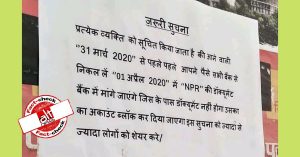 जरुरी सुचना
प्रत्येक व्यक्ति को सूचित किया जाता है की आने वाली
"31 मार्च 2020" से पहले पहले आपने पैसे सभी बैंक से
निकल लें "01 अप्रैल 2020" में "NPR" की डॉक्यूमेंट
बैंक में मांगे जाएंगे जिस के पास डॉक्यूमेंट नहीं होगा उसका
का अकाउंट ब्लॉक कर दिया जाएगा इस सुचना को ज्यादा से
ज्यादा लोगों को शेयर करे/
Fact-check
Fact-check